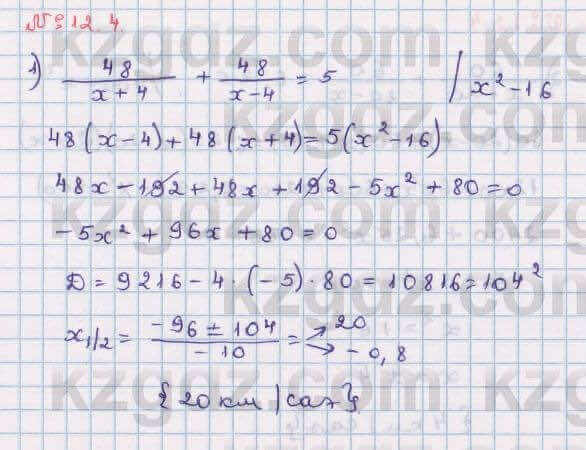 № 12.4.
1) 48/(x+4) + 48/(x-4) = 5 | x² - 16
48(x-4)+48(x+4)=5(x²-16)
48x-192+48x+192-5x²+80=0
-5x²+96x+80=0
D=9216-4·(-5)·80=10816=104²
x₁/₂ = (-96±104)/(-10) = → 20 → -0,8
{20 км/сағ}
kzgdz.com